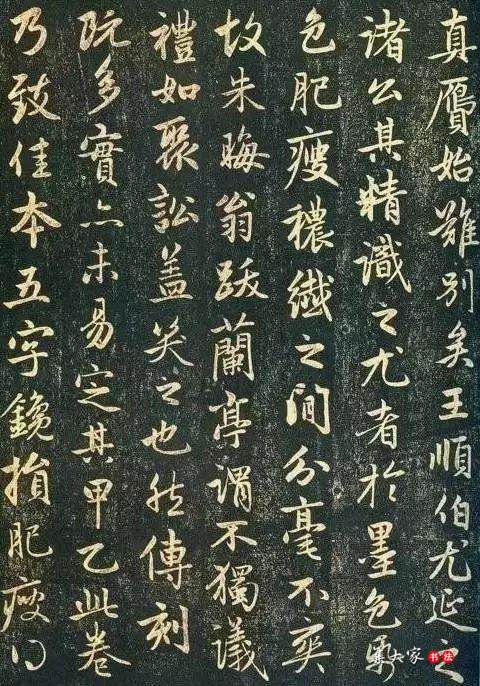 真贋始難別矣王順伯尤延之
諸公其精識之尤者於墨色帋
色肥瘦穠纖之間分毫不爽
故朱晦翁跋蘭亭謂不獨議
禮如聚訟盖笑之也然傳刻
既多實亦未易定其甲乙此卷
乃致佳本五字鑱損肥瘦得
集大家 书法